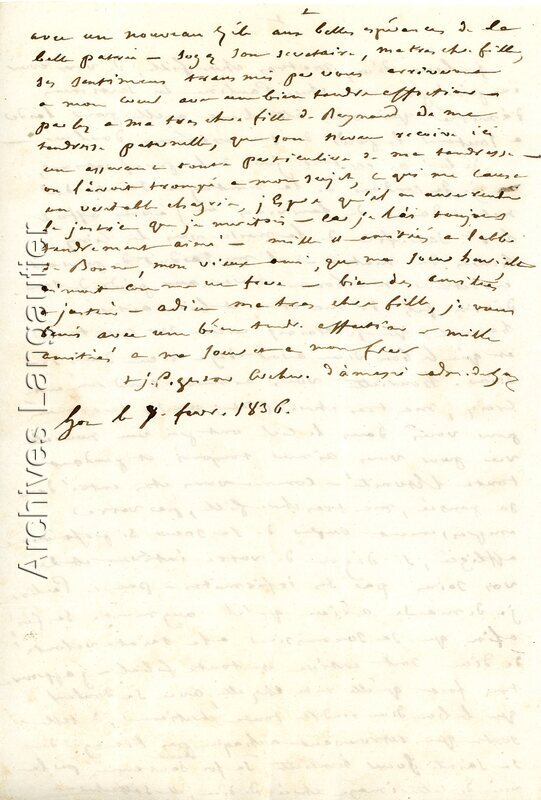 avec un nouveau zèle aux belles espérances de la
belle patrie – soyez son secretaire, ma tres chere fille,
ses sentimens transmis par vous arriveront
a mon cœur avec une bien tendre affection –
parlez a ma tres chere fille de Reynaud de ma
tendresse paternelle, que son neveu recoive ici
une assurance toute particuliere de ma tendresse –
on l'avoit trompé a mon sujet, ce qui me cause
un veritable chagrin, j'espere qu'il m'aura rendu
la justice que je meritois – car je l'ai toujours
tendrement aimé – mille amitiés a l'abbé
de Bonne, mon vieux ami, que ma sœur henriette
aimoit comme un frere – bien des amitiés
a justin – adieu ma tres chere fille, je vous
benis avec une bien tendre affection – mille
amitiés a ma sœur et a mon frere
+ J. P. gaston archev. d'amasie adm. de Lyon
Lyon le 7. fevr. 1836.
Archives Langautier